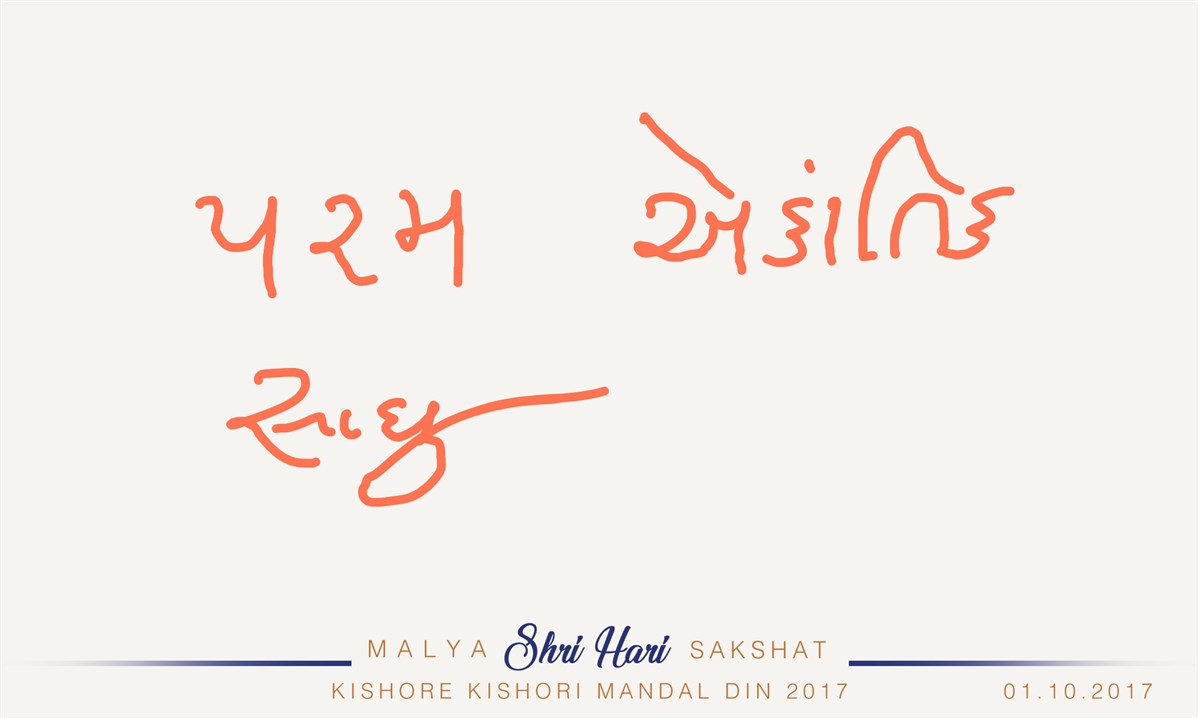 પરમ એકાંતિક
સાધુ
MALYA Shri Hari SAKSHAT
KISHORE KISHORI MANDAL DIN 2017
01.10.2017